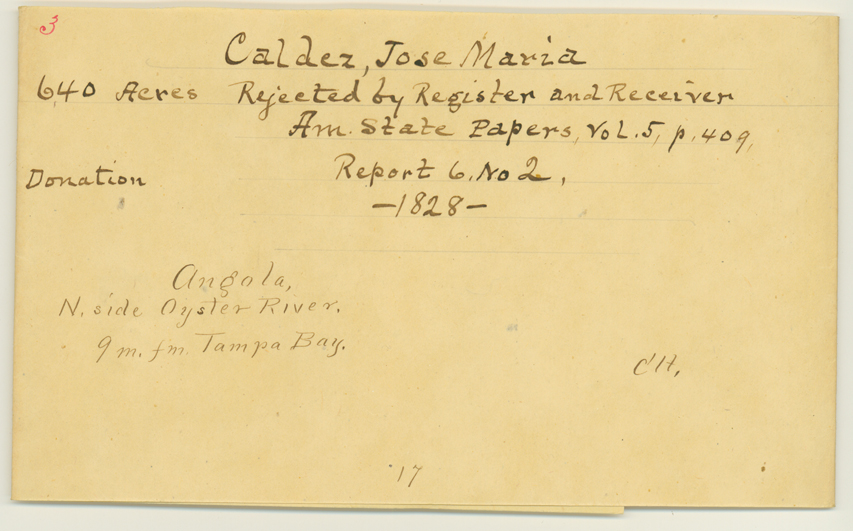 3
Caldez, Jose Maria
640 Acres Rejected by Register and Receiver
Am. State Papers, Vol. 5, p. 409,
Donation Report 6, No 2,
—1828—
Angola,
N. side Oyster River.
9 m. fm. Tampa Bay.
17